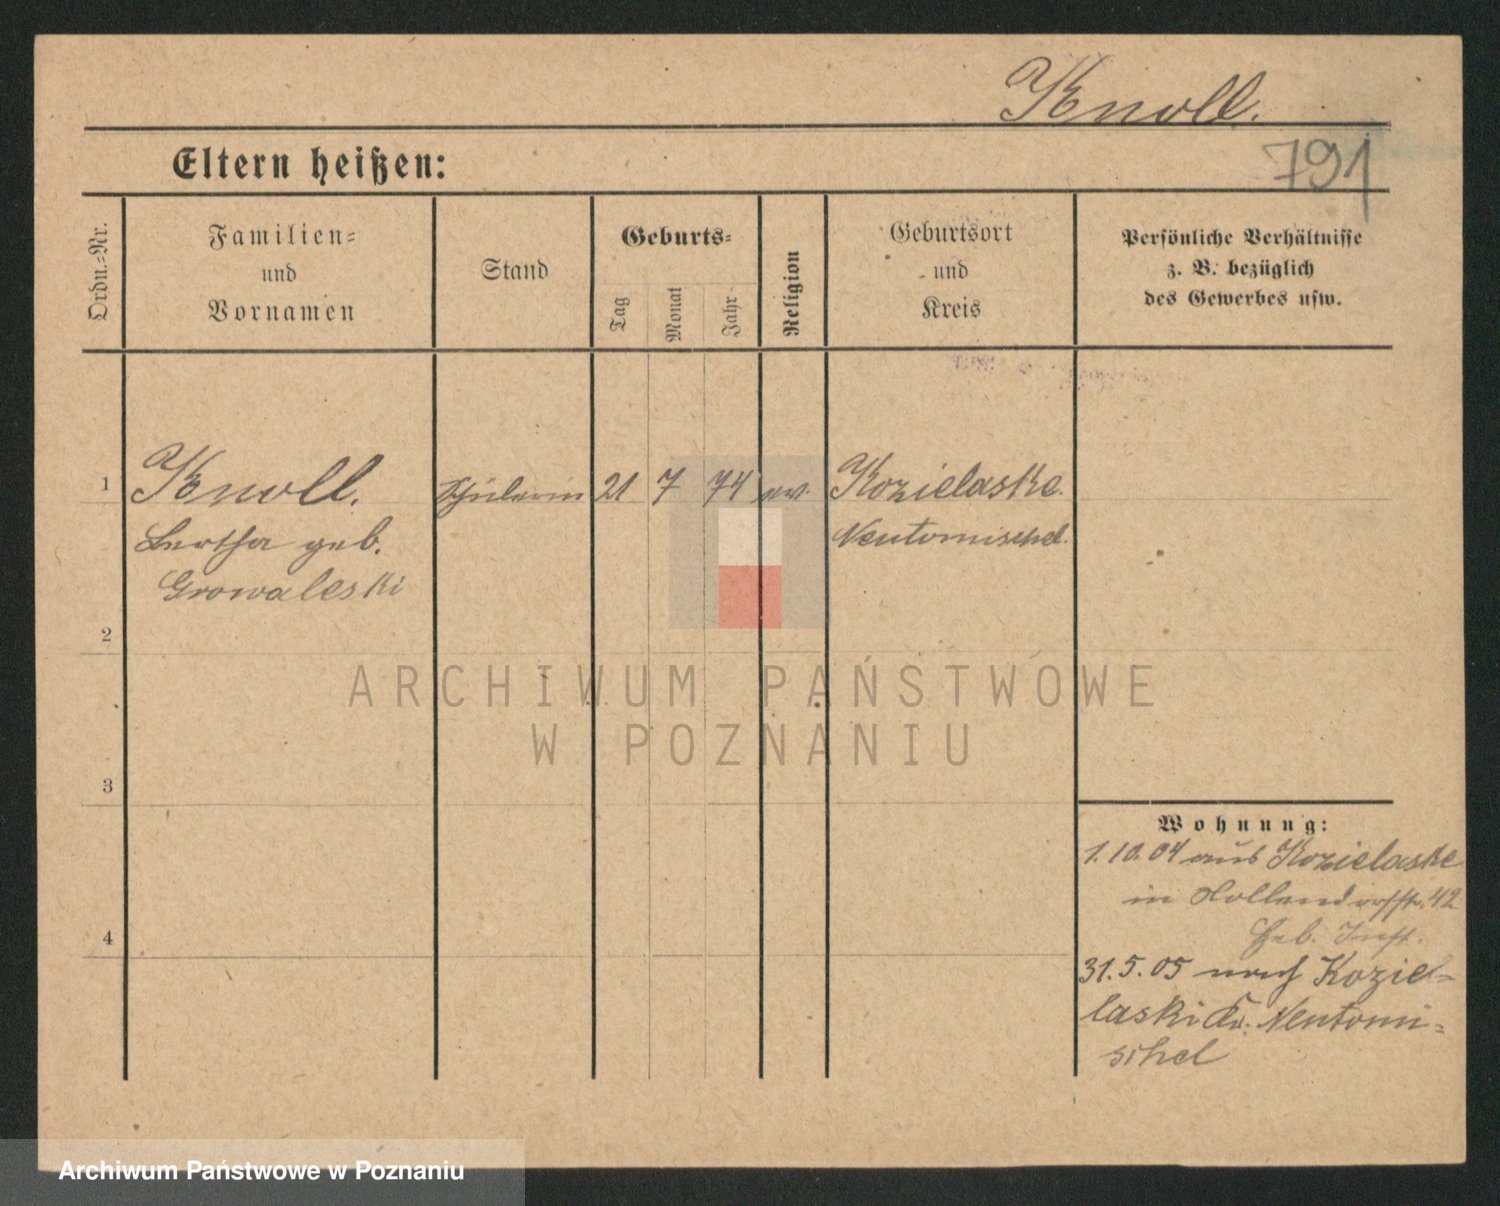 Knoll.
791
Eltern heißen:
Ordn.-Nr.
Familien-
und
Vornamen
Stand
Geburts-
Tag
Monat
Jahr
Religion
Geburtsort
und
Kreis
Persönliche Verhältnisse
z. B. bezüglich
des Gewerbes usw.
1 Knoll. Schülerin 21 7 74 ev. Kozielaske.
Bertha geb. Neutomischel.
Growaleski
2
3
4
Wohnung:
1.10.04 aus Kozielaske
in Hollendorffstr. 42
31.5.05 nach Kozie-
laski Kr. Neutomi-
schel
ARCHIWUM PAŃSTWOWE
W POZNANIU
Archiwum Państwowe w Poznaniu